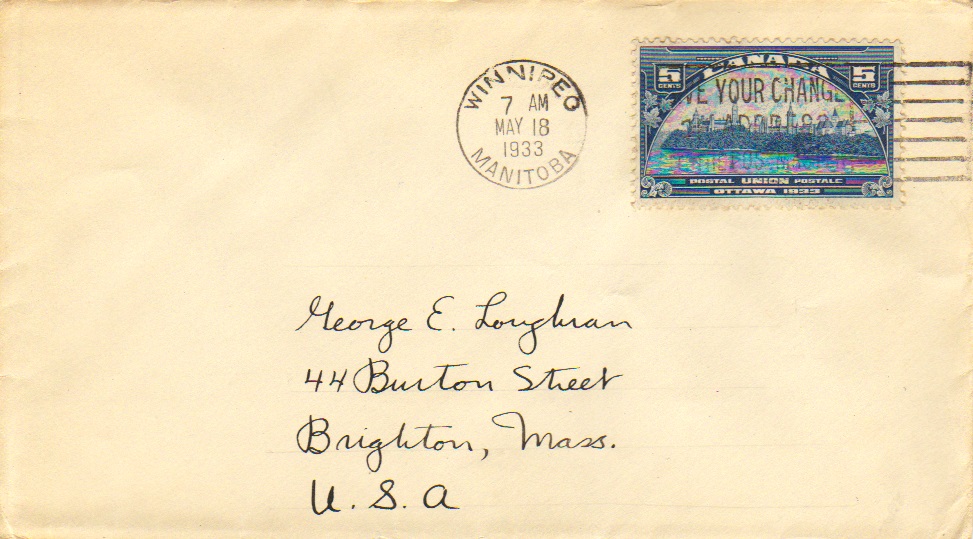 WINNIPEG
7 AM
MAY 18
1933
MANITOBA
CANADA
5 CENTS
5 CENTS
YOUR CHANGE
POSTAL UNION POSTALE
OTTAWA 1933
George E. Loughran
44 Burton Street
Brighton, Mass.
U. S. A